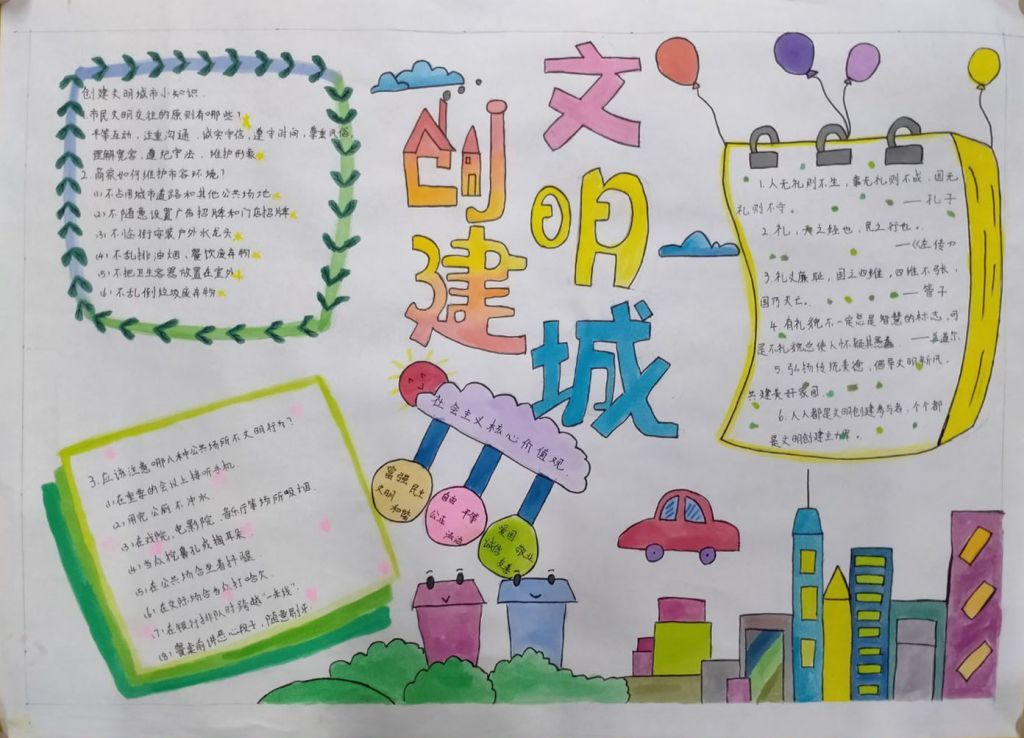 创建
文明城
创建文明城市小知识.
1.市民文明交往的原则有哪些?
平等互动,注重沟通.诚实守信,遵守时间,尊重风俗,
理解宽容,遵纪守法.维护形象
2.商家如何维护市容环境?
(1)不占用城市道路和其他公共场地
(2)不随意设置广告招牌和门店招牌
(3)不临街安装户外水龙头
(4)不乱排油烟、餐饮废弃物
(5)不把卫生容器放置在室外
(6)不乱倒垃圾废弃物
3.应该注意哪八种公共场所不文明行为?
(1)在重要的会议上接听手机
(2)用完公厕不冲水.
(3)在戏院、电影院、音乐厅等场所吸烟.
(4)当众挖鼻孔或掏耳朵.
(5)在公共场合坐着抖腿.
(6)在交际场合当众打哈欠.
(7)在银行排队时跨越“一米线”.
(8)餐桌前讲恶心段子,随意剔牙.
社会主义核心价值观.
富强 民主
文明
和谐
自由 平等
公正
法治
爱国 敬业
诚信
友善
1.人无礼则不生,事无礼则不成,国无
礼则不宁。 ——孔子
2.礼,天之经也,民之行也。
——《左传》
3.礼义廉耻,国之四维,四维不张,
国乃灭亡。 ——管子
4.有礼貌不一定总是智慧的标志,可
是不礼貌总使人怀疑其愚蠢. ——兰道尔
5.弘扬传统美德,倡导文明新风.
共建美好家园.
6.人人都是文明创建参与者,个个都
是文明创建主力军。